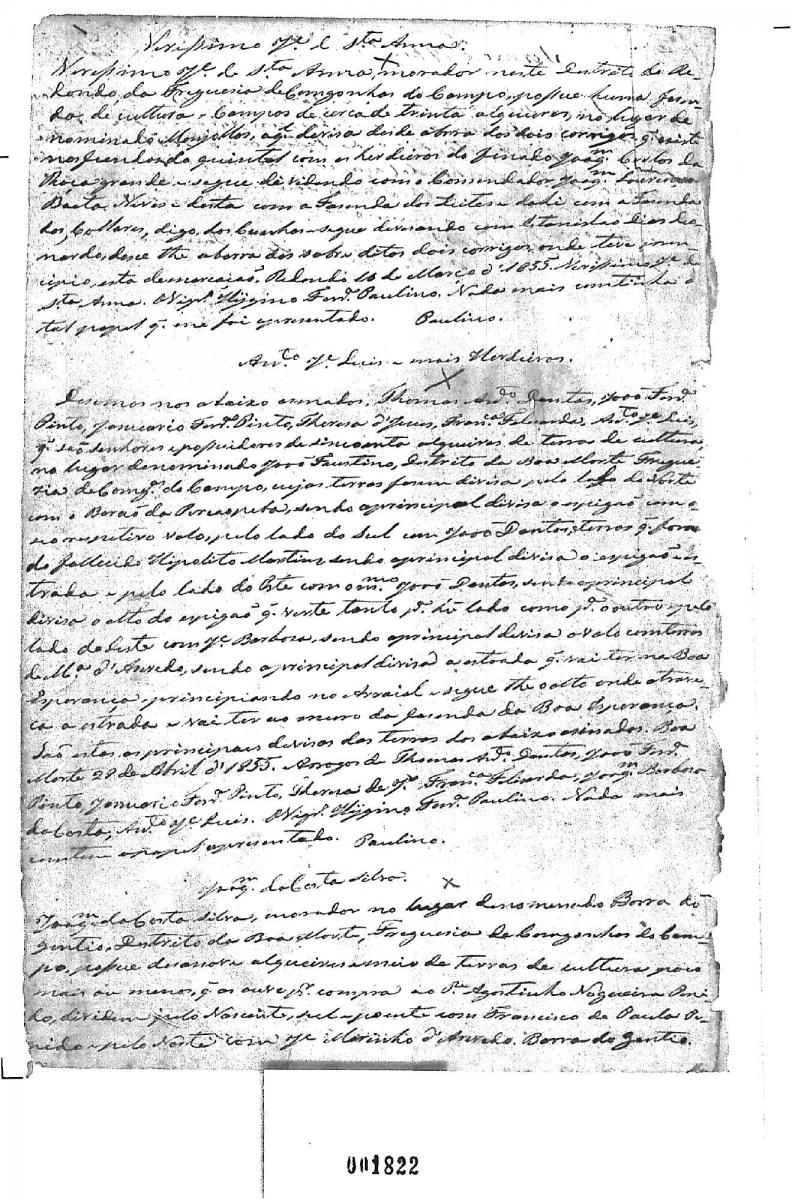 Verissimo Je. e Sta. Anna.
Verissimo Je. de Sta. Anna, morador neste Destrito do Re-
dondo, da Freguesia de Comgonhas do Campo, possue huma fasen-
da, de cultura e Campos de cerca de trinta alqueires, no lugar de
nominado Monjollos, a ql. devisa desde abrra dos dois corrigos, q. existe
nos fundos do quintal com os herdieros do finado Joaqm.
Roça grande e segue devidindo com o Comendador Joaqm. Lourenço
Baeta Neves e desta com a Fasenda dos Leites e dahi com a Fasenda
dos Collares, digo, dos Cunhas e segue devisando com Estanislao Dias
nardo, desce the abarra dos sobre ditos dois corrigos, onde teve prin-
cipio, esta demarcaçaõ. Redondo 10 de Março d' 1855. Verissimo Je. de
Sta. Anna. O Vigro. Hygino Ferra. Paulino. Nada mais continha o
tal papel q. me foi apresentado. Paulino.
Anto. Je. Luis e mais Herdieros.
Disemos nos abaixo asinados, Thomas Anto. Dantas, Joaõ Ferra.
Pinto, Januario Ferra. Pinto, Theresa d' Jesus, Franca. Felisarda, Anto. Je. Luis,
q. saõ senhores e possuidores de sincoenta alqueires de terra de cultura,
no lugar denominado Joaõ Faustino, Destrito da Boa Morte Fregue-
zia de Comgas. do Campo, cujas terras fazem divisa pelo lado do Norte
com o Baraõ da Paraopeba, sendo aprincipal divisa o espigaõ com o
seo respetivo valo, pelo lado do Sul com Joaõ Dantas, terras q. foraõ
do fallecido Hipolito Martins sendo aprincipal divisa o espigaõ es-
trada e pelo lado do Este com o mmo. Joaõ Dantas, sendo aprincipal
divisa o alto do espigaõ q. verte tanto pa. hũ lado como pa. o outro e pelo
lado do Leste com Je. Barbosa, sendo aprincipal divisa o valo com terras
de Ma. d' Asevedo, sendo a principal divisa a estrada q. vai ter na Boa
Esperança e principiando no Arraial e segue the o alto onde atrave-
ça a estrada e vai ter ao muro da fasenda da Boa Esperança.
Saõ estas as principaes devisas das terras dos abaixo asinados. Boa
Morte 28 de Abril d' 1855. Arrogos de Thomas Anto. Dantas, Joaõ Ferra.
Pinto, Januario Ferra. Pinto, Theresa de Js. Franca. Felisarda, Joaqm. Barbosa
da Costa, Anto. Je. Luis. O Vigro. Hygino Ferra. Paulino. Nada mais
contem o papel apresentado. Paulino.
Joaqm. da Costa Silva.
Joaqm. da Costa Silva, morador no lugar denomenado Barra do
Gentio, Destrito da Boa Morte, Freguesia de Comgonhas do Cam-
po, possue desanove alqueires e meio de terras de cultura poco
mais ou menos, q. as ouve pr. compra ao Pe. Agostinho Nogueira Peni-
do, dividem pelo Nascente, sul e poente com Francisco de Paula Pe-
nido e pelo Norte com Je. Marinho d' Asevedo. Barra do Gentio.
001822